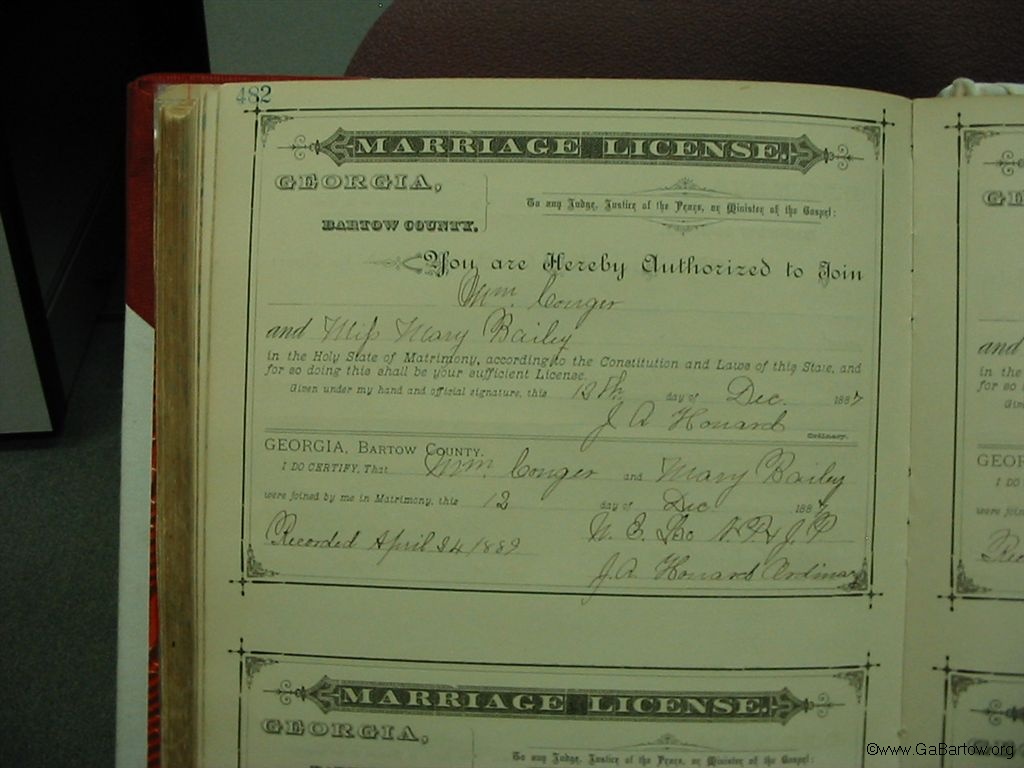 482
MARRIAGE LICENSE.
GEORGIA,
BARTOW COUNTY.
To any Judge, Justice of the Peace, or Minister of the Gospel:
You are Hereby Authorized to Join
Wm. Conger
and Miss Mary Bailey
in the Holy State of Matrimony, according to the Constitution and Laws of this State, and
for so doing this shall be your sufficient License.
Given under my hand and official signature, this 12th day of Dec. 1887
J A Howard
Ordinary.
GEORGIA, BARTOW COUNTY.
I DO CERTIFY, That Wm. Conger and Mary Bailey
were joined by me in Matrimony, this 12 day of Dec 1887
Recorded April 24 1889
J.A. Howard Ordinary
MARRIAGE LICENSE.
GEORGIA,
To any Judge, Justice of the Peace, or Minister of the Gospel:
and
in the
for so
GEOR
I DO
were join
©www.GaBartow.org